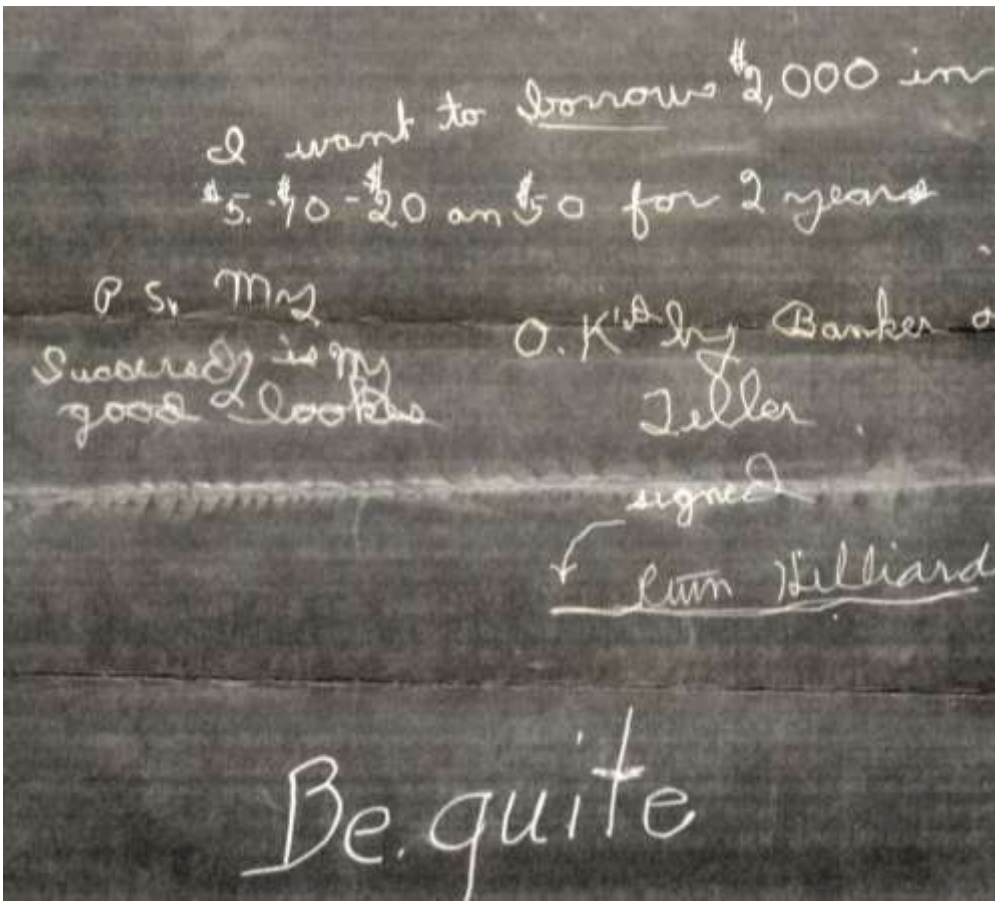 I want to borrow $2,000 in
$5. $10 - $20 an $50 for 2 years
P S. My
Success is my
good lookes
O. K'd by Banker o
Teller
signed
Hilliard
Be. quite